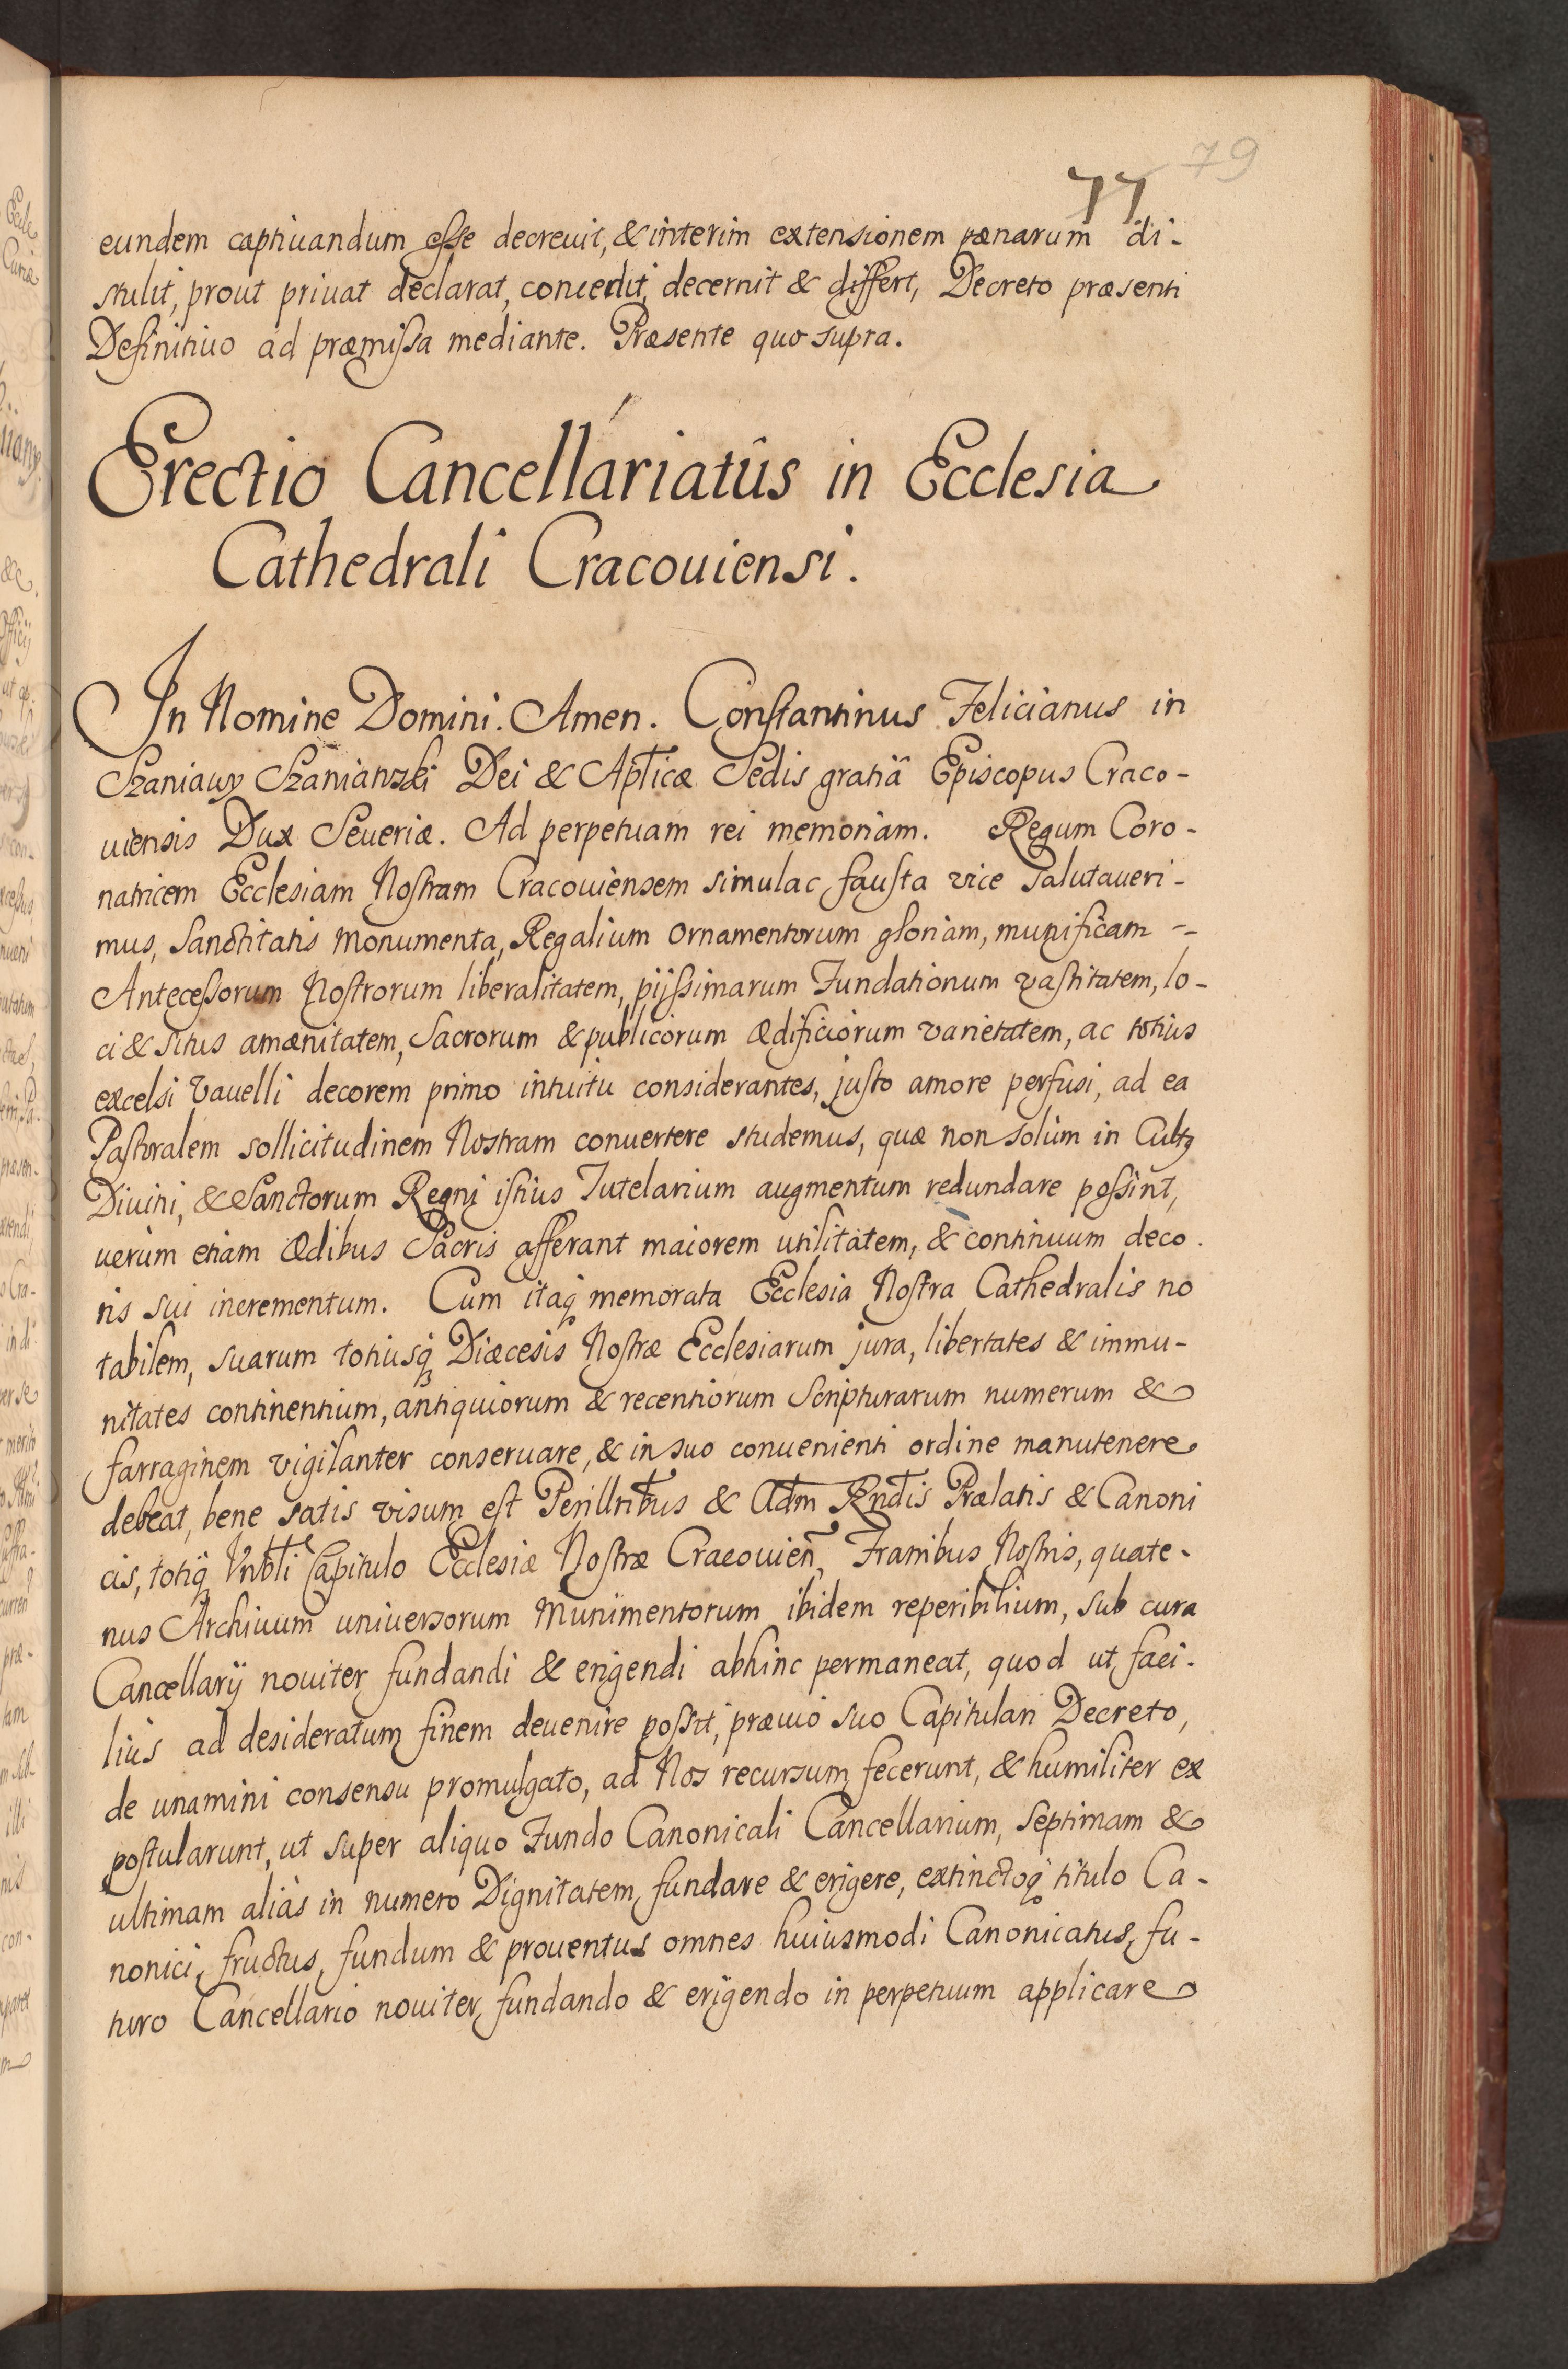 79
77
eundem captiuandum esse decreuit, & interim extensionem pænarum di-
stulit, prout priuat declarat, concedit, decernit & differt, Decreto præsenti
Definitiuo ad præmissa mediante. Præsente quo supra.
Erectio Cancellariatûs in Ecclesia
Cathedrali Cracouiensi.
In Nomine Domini. Amen. Constantinus Felicianus in
Szaniawy Szanianski Dei & Aplicæ Sedis gratiâ Episcopus Craco-
uiensis Dux Seueriæ. Ad perpetuam rei memoriam. Regum Coro-
natricem Ecclesiam Nostram Cracouiensem simulac fausta vice salutaueri-
mus, Sanctitatis Monumenta, Regalium Ornamentorum gloriam, munificam
Antecessorum Nostrorum liberalitatem, pijssimarum Fundationum vastitatem, lo-
ci & situs amænitatem, Sacrorum & publicorum Ædificiorum varietatem, ac totius
excelsi Vauelli decorem primo intuitu considerantes, justo amore perfusi, ad ea
Pastoralem sollicitudinem Nostram conuertere studemus, quæ non solùm in Cultq
Diuini, & Sanctorum Regni istius Tutelarium augmentum redundare possint,
uerùm etiam Ædibus Sacris afferant maiorem utilitatem, & continuum deco.
ris sui incrementum. Cum itaq memorata Ecclesia Nostra Cathedralis no
tabilem, suarum totiusq Diæcesis Nostræ Ecclesiarum jura, libertates & immu-
nitates continentium, antiquiorum & recentiorum Scripturarum numerum &
farraginem vigilanter conseruare, & in suo conuenienti ordine manutenere
debeat, bene satis visum est Perilltribus & Adm Rndis Prælatis & Canoni
cis, totiq Vnbli Capitulo Ecclesiæ Nostræ Cracouien, Fratribus Nostris, quate-
nus Archiuum uniuersorum Munimentorum ibidem reperibilium, sub cura
Cancellarÿ nouiter fundandi & erigendi abhinc permaneat, quod ut faci-
liùs ad desideratum finem deuenire possit, præuio suo Capitulari Decreto,
de unamini consensu promulgato, ad Nos recursum fecerunt, & humiliter ex
postularunt, ut super aliquo Fundo Canonicali Cancellarium, Septimam &
ultimam aliàs in numero Dignitatem fundare & erigere, extinctoq titulo Ca-
nonici, fructus, fundum & prouentus omnes huiusmodi Canonicatus, fu-
turo Cancellario nouiter fundando & erigendo in perpetuum applicare